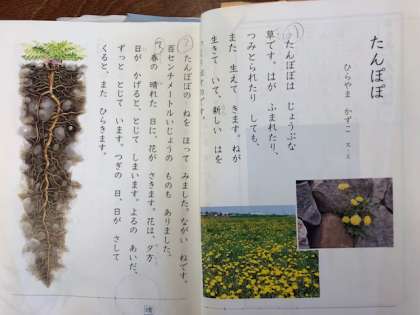 たんぽぽ
ひらやま かずこ 文・え
① たんぽぽは じょうぶな
草です。はが ふまれたり、
つみとられたり しても、
また 生えて きます。ねが
生きて いて、新しい はを
② たんぽぽの ねを ほって みました。ながい ねです。
百センチメートルいじょうの ものも ありました。
③ 春の 晴れた 日に、花が さきます。花は、夕方
日が かげると、とじて しまいます。よるの あいだ、
ずっと とじて います。つぎの 日、日が さして
くると、また ひらきます。